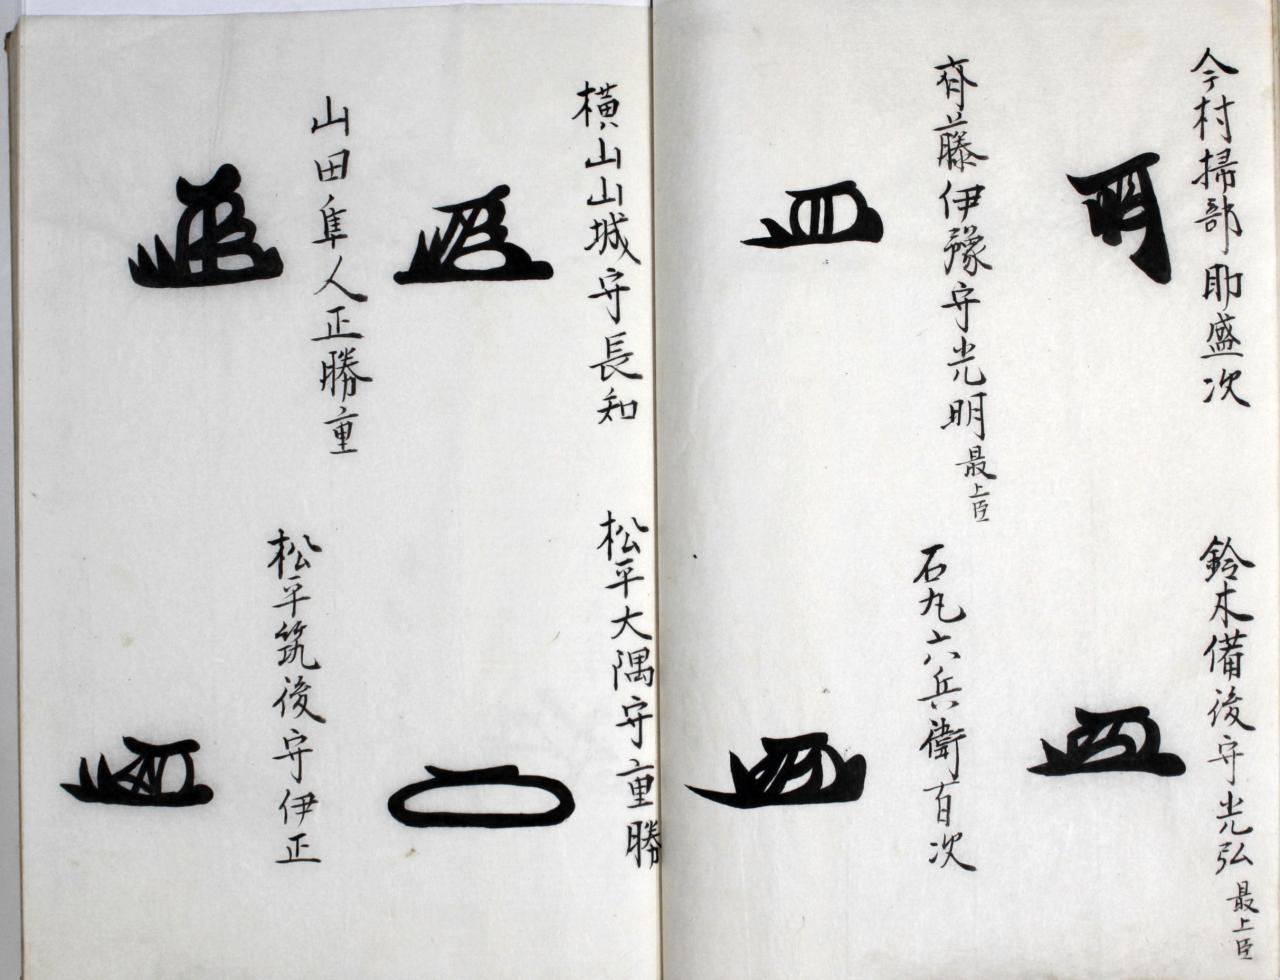 今村掃部助盛次
鈴木備後守光弘 最上臣
斉藤伊豫守光明 最上臣
石丸六兵衛有次
横山山城守長知
松平大隅守重勝
山田隼人正勝重
松平筑後守伊正